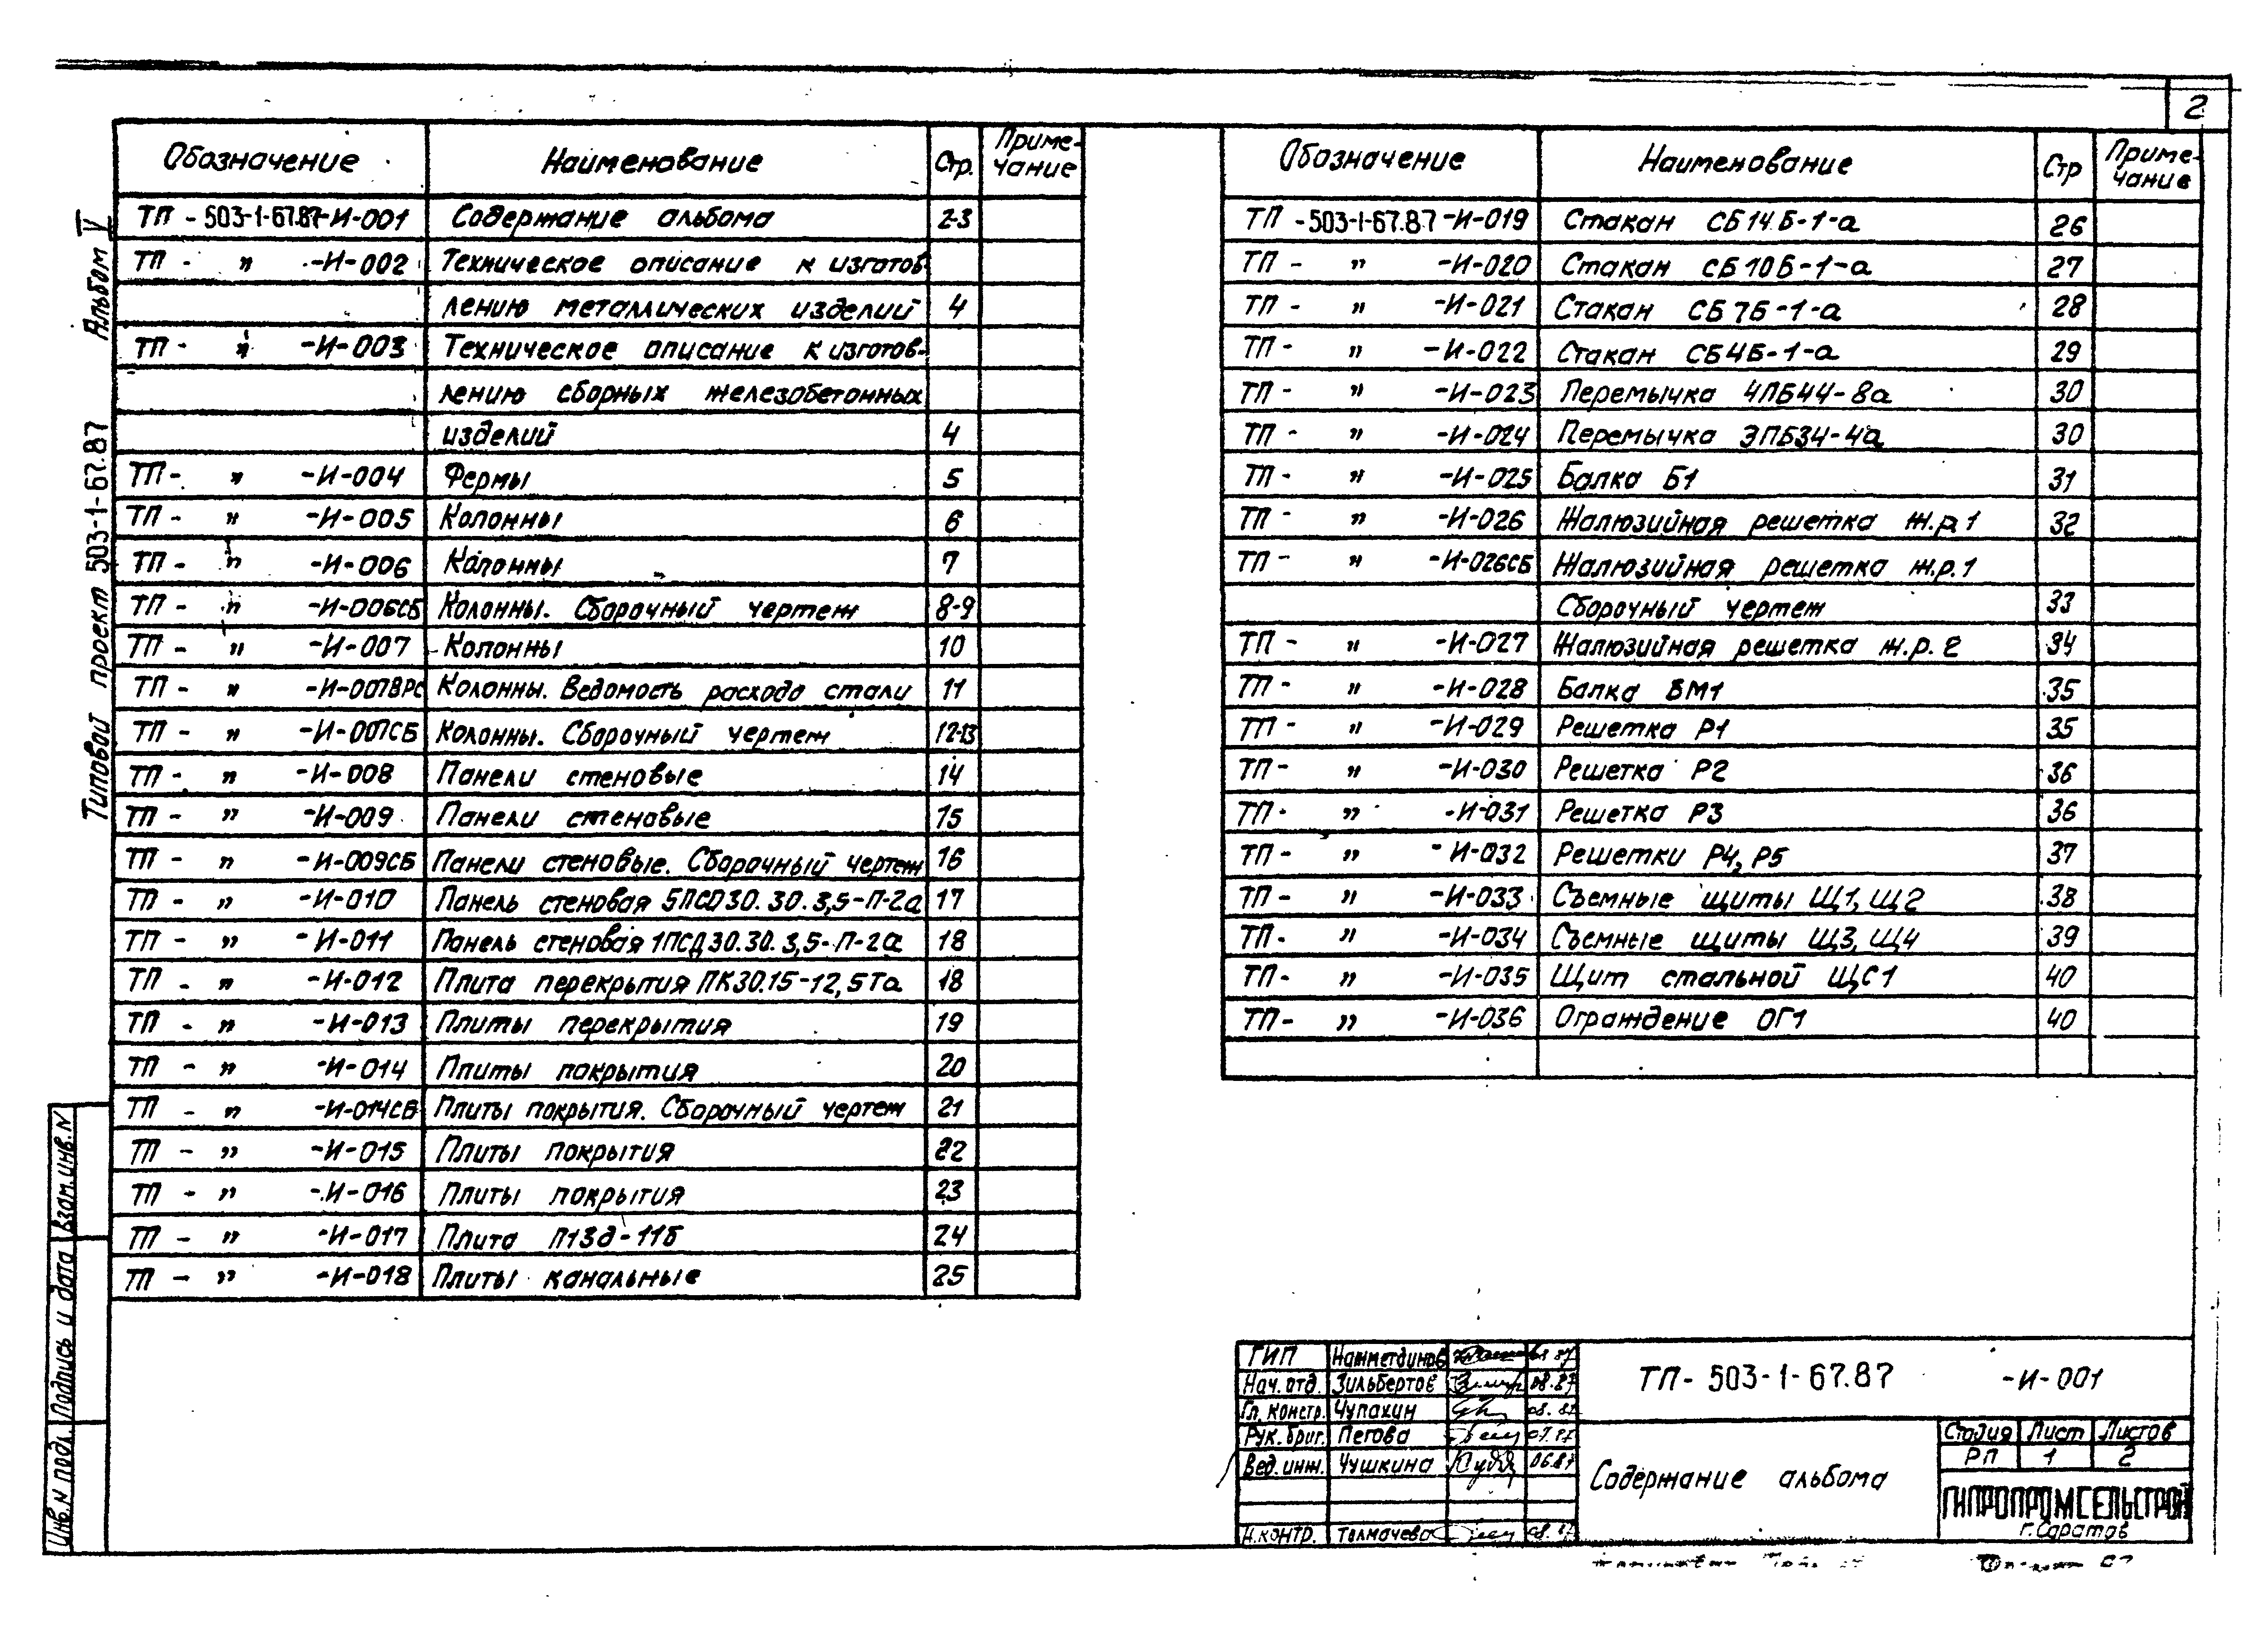 2
Альбом V
Типовой проект 503-1-67.87
Обозначение Наименование Стр. Приме-
чание
ТП - 503-1-67.87-И-001 Содержание альбома 2-3
ТП - " -И-002 Техническое описание к изготов-
лению металлических изделий 4
ТП - " -И-003 Техническое описание к изготов-
лению сборных железобетонных
изделий 4
ТП - " -И-004 Фермы 5
ТП - " -И-005 Колонны 6
ТП - " -И-006 Колонны 7
ТП - " -И-006СБ Колонны. Сборочный чертеж 8-9
ТП - " -И-007 Колонны 10
ТП - " -И-007ВРС Колонны. Ведомость расхода стали 11
ТП - " -И-007СБ Колонны. Сборочный чертеж 12-13
ТП - " -И-008 Панели стеновые 14
ТП - " -И-009 Панели стеновые 15
ТП - " -И-009СБ Панели стеновые. Сборочный чертеж 16
ТП - " -И-010 Панель стеновая 5ПСД30.30.3,5-П-2а 17
ТП - " -И-011 Панель стеновая 1ПСД30.30.3,5-П-2а 18
ТП - " -И-012 Плита перекрытия ПК30.15-12,5Та 18
ТП - " -И-013 Плиты перекрытия 19
ТП - " -И-014 Плиты покрытия 20
ТП - " -И-014СБ Плиты покрытия. Сборочный чертеж 21
ТП - " -И-015 Плиты покрытия 22
ТП - " -И-016 Плиты покрытия 23
ТП - " -И-017 Плита П13д-11б 24
ТП - " -И-018 Плиты канальные 25
Обозначение Наименование Стр Приме-
чание
ТП - 503-1-67.87 -И-019 Стакан СБ14Б-1-а 26
ТП - " -И-020 Стакан СБ10Б-1-а 27
ТП - " -И-021 Стакан СБ7Б-1-а 28
ТП - " -И-022 Стакан СБ4Б-1-а 29
ТП - " -И-023 Перемычка 4ПБ44-8а 30
ТП - " -И-024 Перемычка 3ПБ34-4а 30
ТП - " -И-025 Балка Б1 31
ТП - " -И-026 Жалюзийная решетка ж.р.1 32
ТП - " -И-026СБ Жалюзийная решетка ж.р.1
Сборочный чертеж 33
ТП - " -И-027 Жалюзийная решетка ж.р.2 34
ТП - " -И-028 Балка БМ1 35
ТП - " -И-029 Решетка Р1 35
ТП - " -И-030 Решетка Р2 36
ТП - " -И-031 Решетка Р3 36
ТП - " -И-032 Решетки Р4, Р5 37
ТП - " -И-033 Съемные щиты Щ1, Щ2 38
ТП - " -И-034 Съемные щиты Щ3, Щ4 39
ТП - " -И-035 Щит стальной ЩС1 40
ТП - " -И-036 Ограждение ОГ1 40
Инв.N подл. Подпись и дата Взам.инв.N
ГИП Нажметдинов 08.87
Нач.отд. Зильбертов 08.87
Гл. констр. Чупахин 08.87
Рук.бриг. Пегова 07.87
Вед.инж. Чушкина 06.87
Н.контр. Толмачева 08.87
ТП- 503-1-67.87 -И-001
Содержание альбома
Стадия Лист Листов
РП 1 2
ГИПРОПРОМСЕЛЬСТРОЙ
г.Саратов